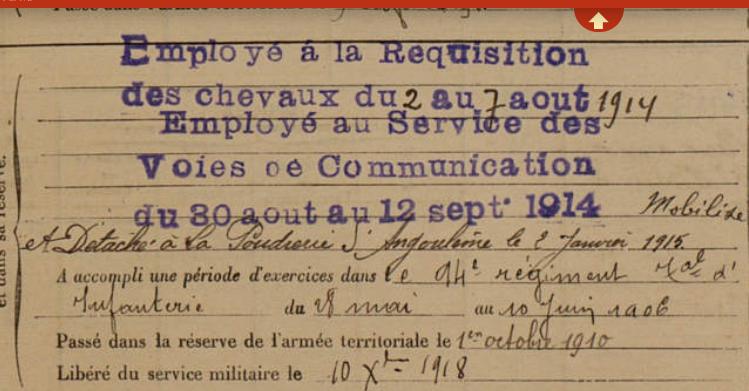 Employé à la Requisition
des chevaux du 2 au 7 aout 1914
Employé au Service des
Voies de Communication
du 30 aout au 12 sept. 1914 Mobilisé
et Détaché à la Poudrerie d'Angoulême le 2 Janvier 1915.
A accompli une période d'exercices dans le 94e régiment Tal d'
Infanterie du 28 mai au 10 Juin 1906
Passé dans la réserve de l'armée territoriale le 1er octobre 1910
Libéré du service militaire le 10 Xbre 1918
et dans sa réserve.